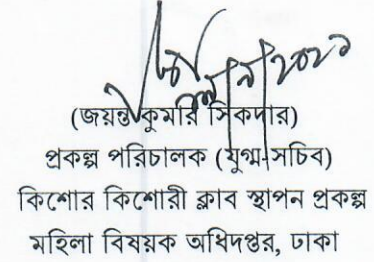 (জয়ন্ত কুমার সিকদার)
প্রকল্প পরিচালক (যুগ্ম-সচিব)
কিশোর কিশোরী ক্লাব স্থাপন প্রকল্প
মহিলা বিষয়ক অধিদপ্তর, ঢাকা